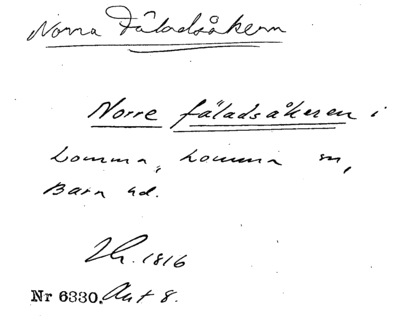 Norra Fäladsåkern
Norre fäladsåkeren i
Lomma, Lomma sn,
Bara hd.
Lh. 1816
Nr 6330. Akt 8.